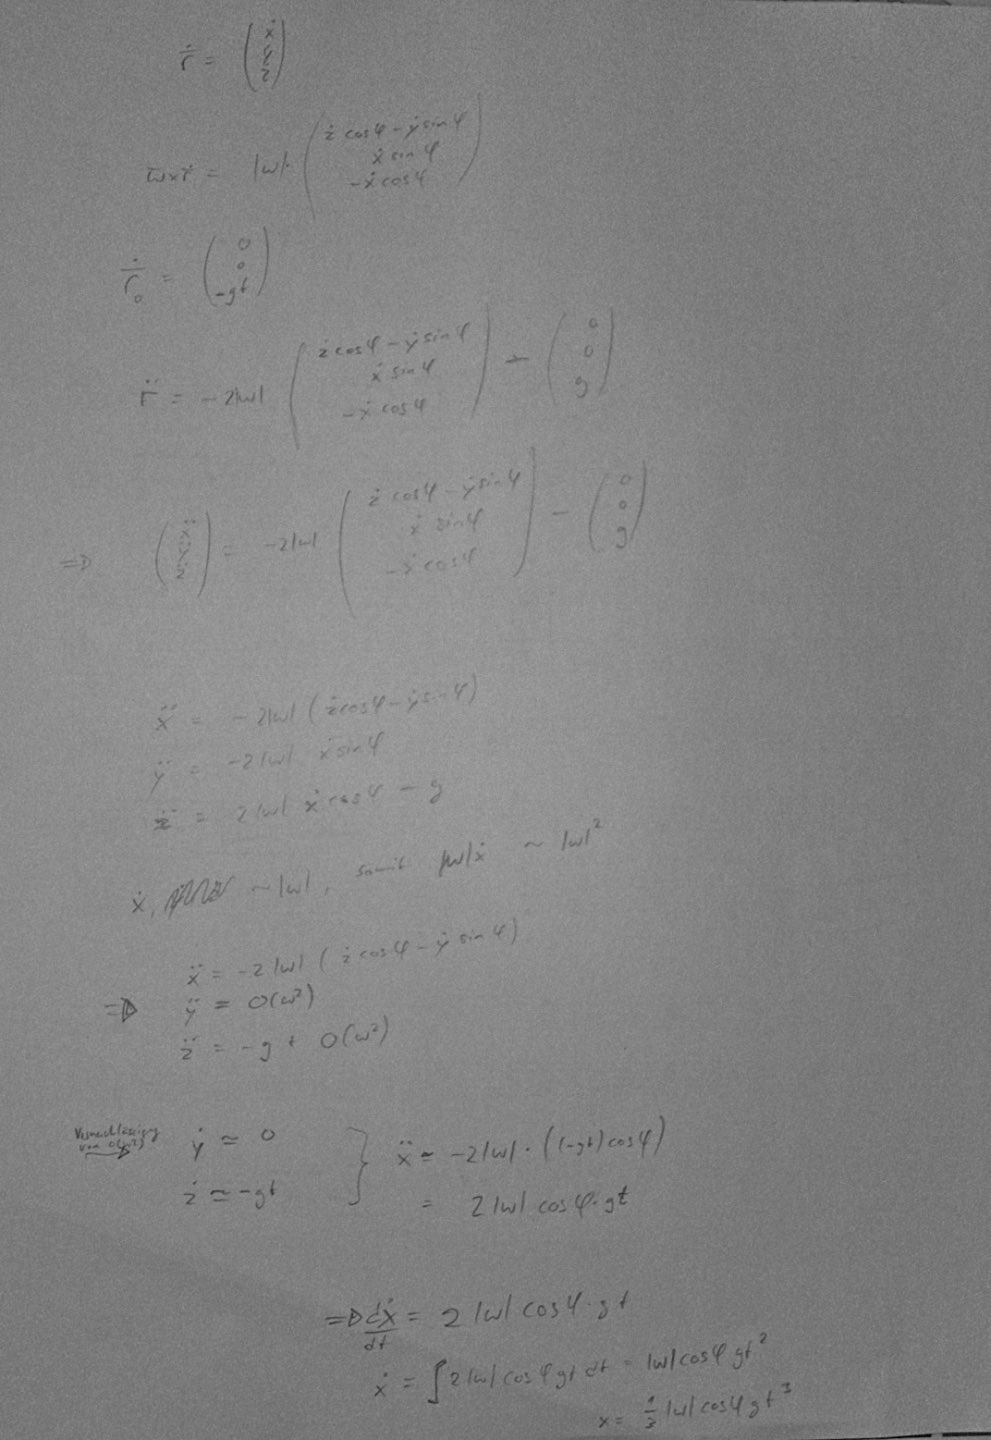 ṙ = (ẋ ẏ ż)
ω×ṙ = |ω|·(ż cosφ − ẏ sinφ
ẋ sinφ
−ẋ cosφ)
ṙ₀ = (0 0 −gt)
r̈ = −2|ω| (ż cosφ − ẏ sinφ
ẋ sinφ
−ẋ cosφ) − (0 0 g)
=> (ẍ ÿ z̈) = −2|ω| (ż cosφ − ẏ sinφ
ẋ sinφ
−ẋ cosφ) − (0 0 g)
ẍ = −2|ω| (ż cosφ − ẏ sinφ)
ÿ = −2|ω| ẋ sinφ
z̈ = 2|ω| ẋ cosφ − g
ẋ, ~ |ω|, somit |ω|ẋ ~ |ω|²
ẍ = −2|ω| (ż cosφ − ẏ sinφ)
=> ÿ = O(ω²)
z̈ = −g + O(ω²)
Vernachlässigung von O(ω²)
ẏ ≃ 0
ż ≃ −gt
} ẍ ≃ −2|ω|·((−gt) cosφ)
= 2|ω| cosφ·gt
=> dẋ/dt = 2|ω| cosφ·gt
ẋ = ∫2|ω| cosφ gt dt = |ω| cosφ gt²
x = 1/3 |ω| cosφ gt³